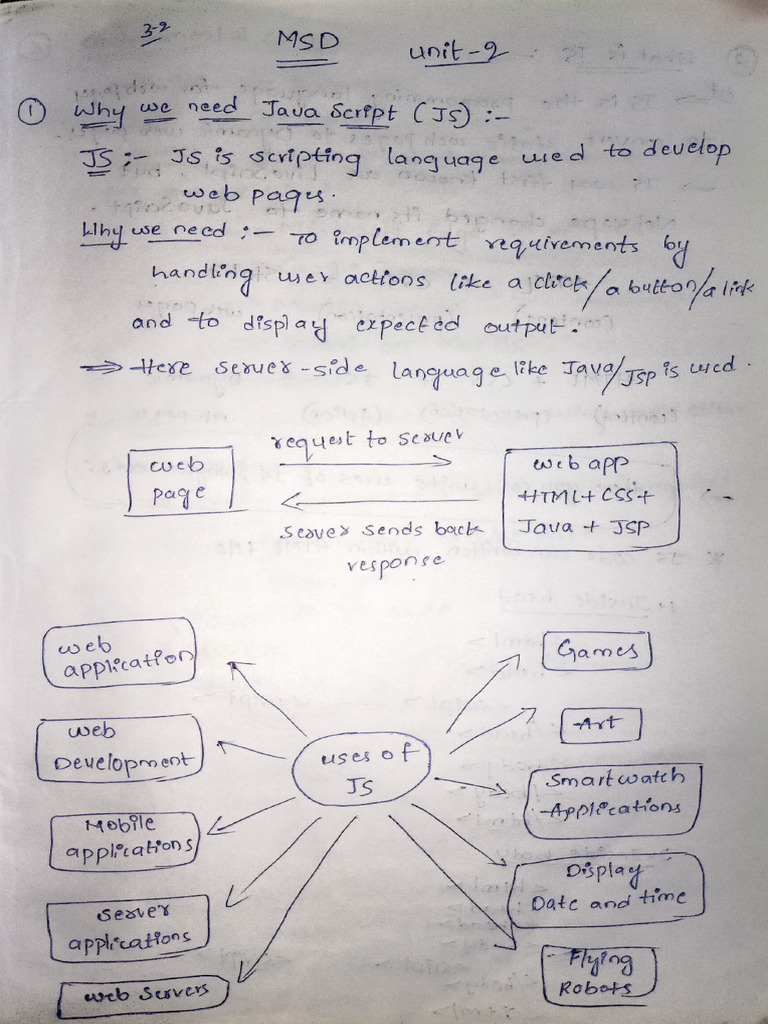 3-2
MSD unit-2
① Why we need Java Script (JS) :-
JS :- JS is scripting language used to develop
web pages.
Why we need :- To implement requirements by
handling user actions like a click/a button/a link
and to display expected output.
⇒ Here server-side language like Java/JSP is used.
request to server
web
page
web app
HTML+CSS+
Java + JSP
server sends back
response
web
application
Games
web
Development
Art
uses of
JS
Smartwatch
Applications
Mobile
applications
Display
Date and time
server
applications
Flying
Robots
web servers